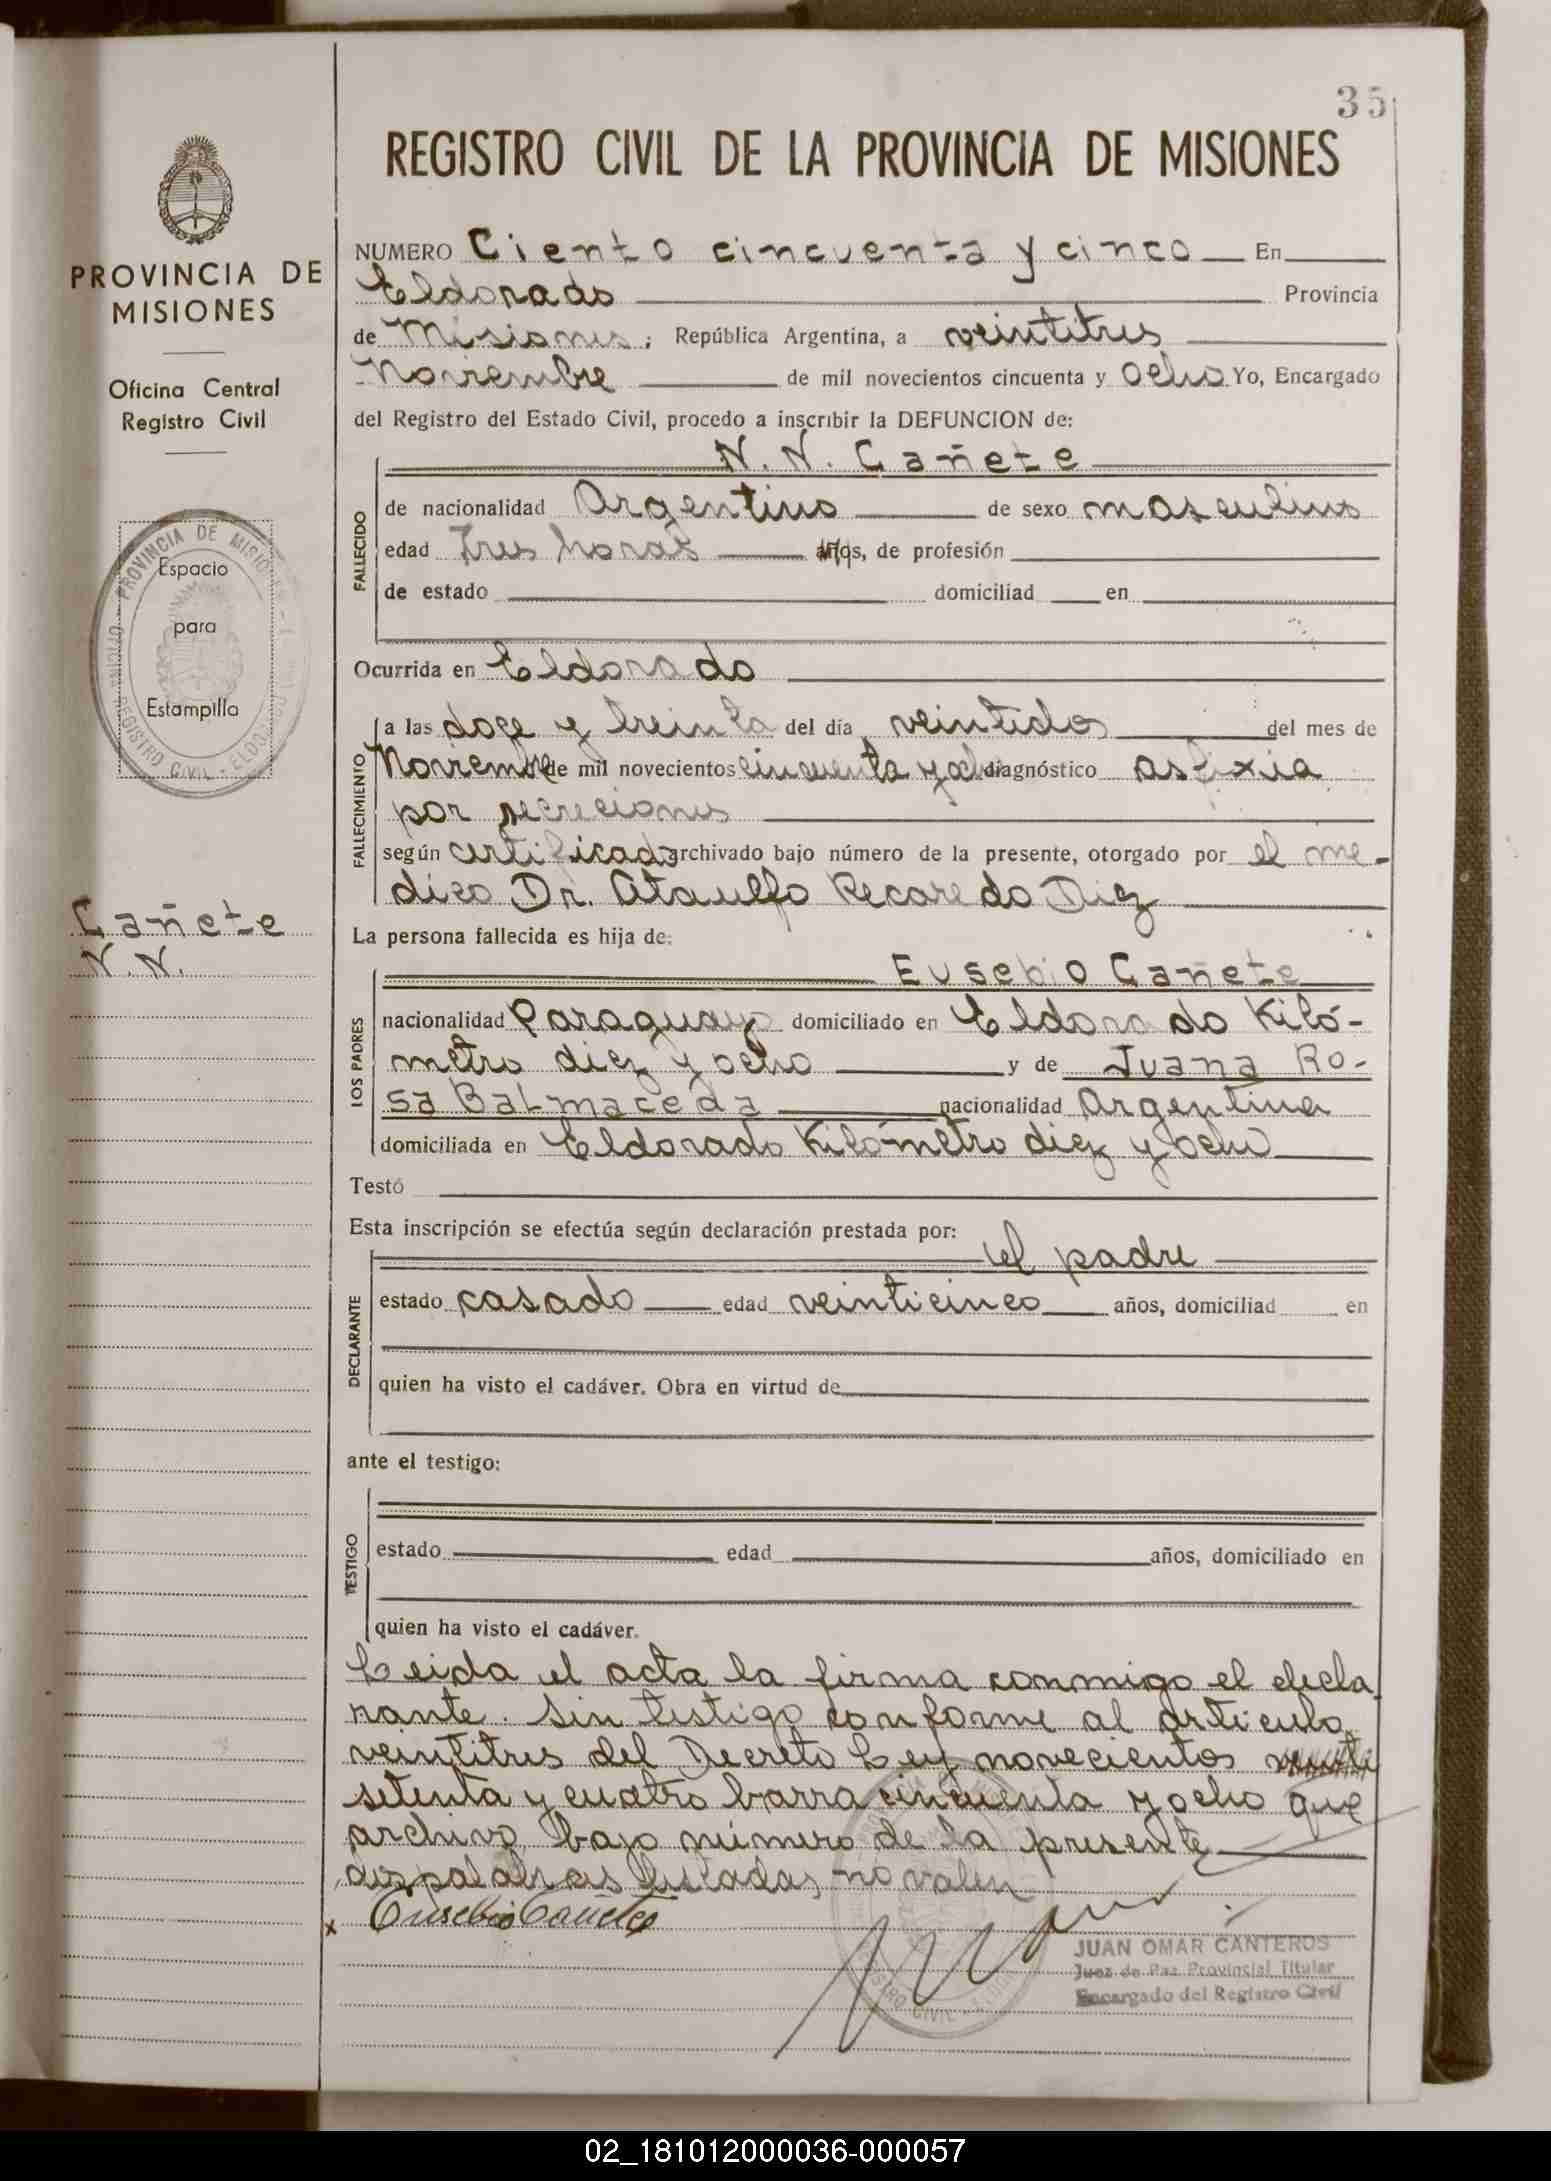 35
REGISTRO CIVIL DE LA PROVINCIA DE MISIONES
PROVINCIA DE
MISIONES
Oficina Central
Registro Civil
Espacio
para
Estampilla
Cañete
N. N.
NUMERO Ciento cincuenta y cinco En
Eldorado Provincia
de Misiones; República Argentina, a veintitres
Noviembre de mil novecientos cincuenta y ocho Yo, Encargado
del Registro del Estado Civil, procedo a inscribir la DEFUNCION de:
N. N. Cañete
FALLECIDO
de nacionalidad Argentino de sexo masculino
edad Tres horas años, de profesión
de estado domiciliad en
Ocurrida en Eldorado
FALLECIMIENTO
a las doce y treinta del día veintidos del mes de
Noviembre de mil novecientos cincuenta y ocho diagnóstico asfixia
por secreciones
según certificado archivado bajo número de la presente, otorgado por el me-
dico Dr. Ataulfo Recaredo Diez
La persona fallecida es hija de:
LOS PADRES
Eusebio Cañete
nacionalidad Paraguayo domiciliado en Eldorado Kiló-
metro diez y ocho y de Juana Ro-
sa Balmaceda nacionalidad Argentina
domiciliada en Eldorado Kilómetro diez y ocho
Testó
Esta inscripción se efectúa según declaración prestada por:
el padre
DECLARANTE
estado casado edad veinticinco años, domiciliad en
quien ha visto el cadáver. Obra en virtud de
ante el testigo:
TESTIGO
estado edad años, domiciliado en
quien ha visto el cadáver.
Leida el acta la firma conmigo el decla
rante. Sin testigo conforme al articulo
veintitres del Decreto Ley novecientos
setenta y cuatro barra cincuenta y ocho que
archivo bajo número de la presente
palabras testadas no valen
x Eusebio Cañete
JUAN OMAR CANTEROS
Juez de Paz Provincial Titular
Encargado del Registro Civil
02_181012000036-000057